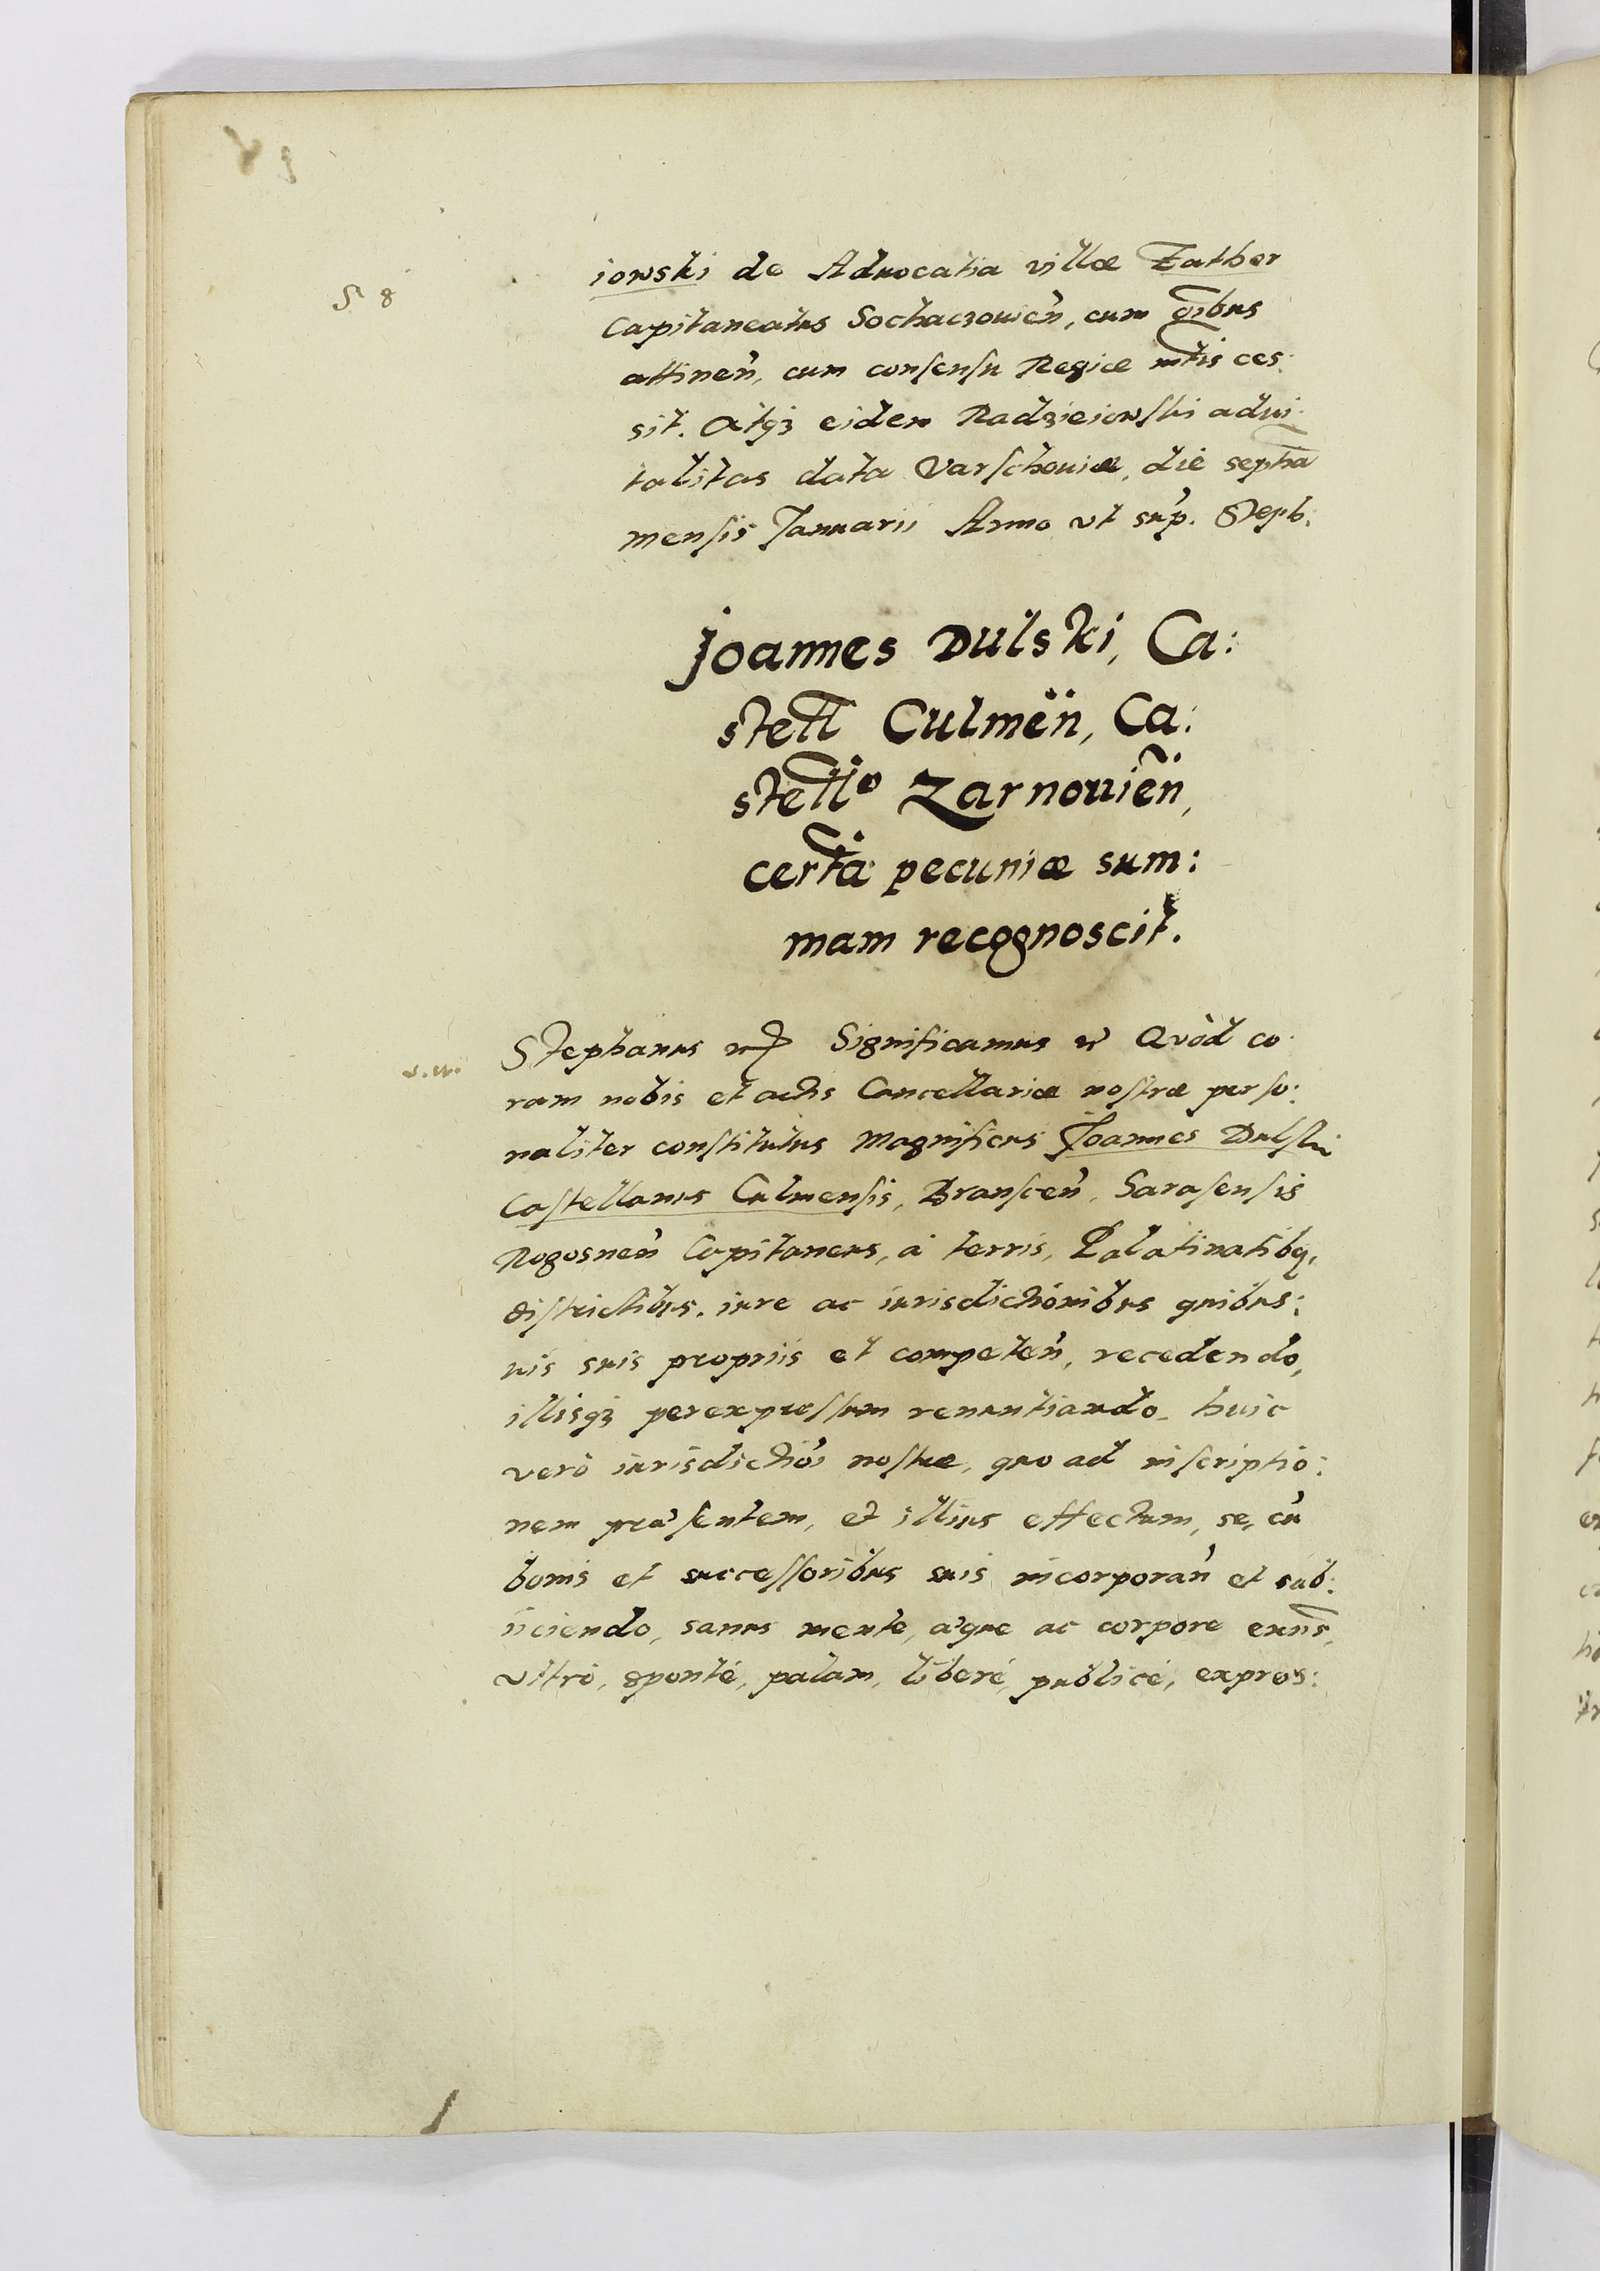 iowski de Aduocatia villæ Zathor
S 8
Capitaneatus Sochaczouieñ, cum oĩbus
attineñ, cum consensu Regiæ mtis ces:
sit. Atqз eidem Radzieiowski advi:
talitas data Varschouiæ, die septĩa
mensis Januarii Anno vt sup. Steph:
Joannes Dulski, Ca:
stell Culmeñ, Ca:
stello Zarnouieñ,
certã pecuniæ sum:
mam recognoscit.
Stephanus Significamus Quòd co:
ram nobis et actis Cancellariæ nostræ perso:
naliter constitutus Magnificus Joannes Dulski
Castellanus Culmensis, Branscen̄, Surasensis
Rogosnen̄ Capitaneus, à terris, Palatinatibq,
districtibus, iure ac iurisdictionibus quibus:
uis suis propriis et competen̄, recedendo,
illisqз per expressum renuntiando, huic
verò iurisdictiõi nostræ, quo ad inscriptio:
nem præsentem, et illius effectum, se, cũ
bonis et successoribus suis incorporan̄ et sub:
iiciendo, sanus mente, æque ac corpore exn̄s,
vltrò, spontè, palàm, liberè, publicè, expres: